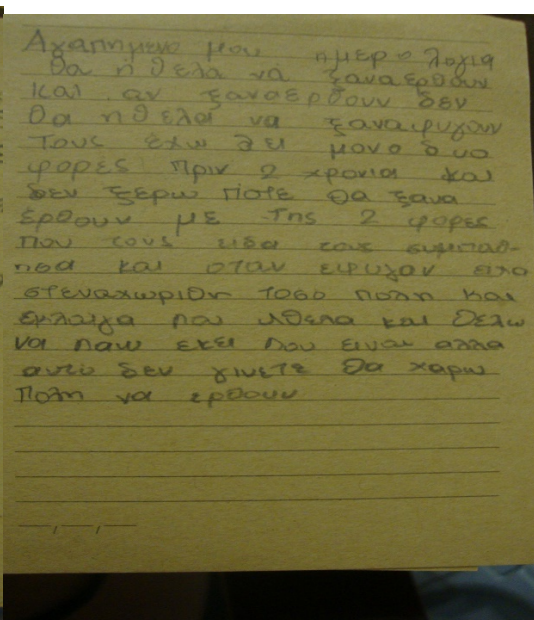 Αγαπημενο μου ημερολογιο
θα ήθελα να ξαναερθουν
και αν ξαναερθουν δεν
θα ηθελα να ξαναφυγουν
τους εχω δει μονο δυο
φορες πριν 2 χρονια και
δεν ξερω ποτε θα ξανα
έρθουν με της 2 φορες
που τους ειδα τους συμπαθ-
ησα και οταν εφυγαν ειχα
στεναχωριθη τοσο πολη και
εκλαιγα που ηθελα και θελω
να παω εκει που ειναι αλλα
αυτο δεν γινετε θα χαρω
πολη να ερθουν